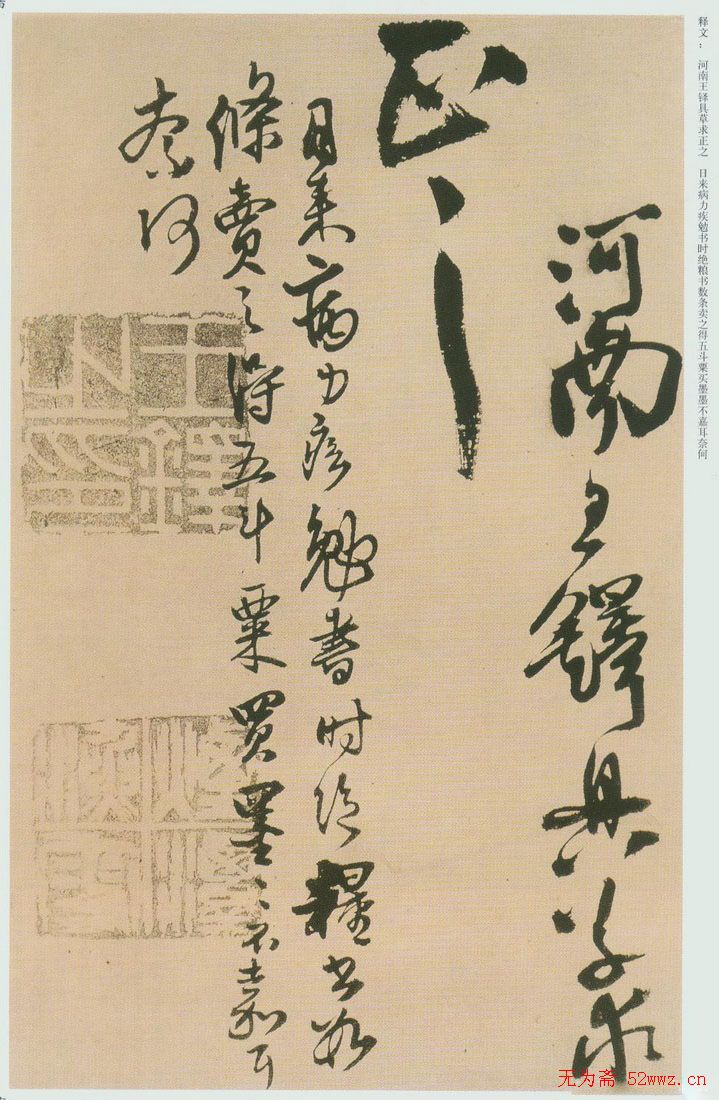 释文： 河南王铎具草求正之 日来病力疾勉书时绝粮书数条卖之得五斗粟买墨墨不嘉耳奈何
河南王鐸具草求
正之
日来病力疾勉書时絶糧書数
條賣之得五斗粟買墨〻不嘉耳
奈何
王鐸之印
无为斋 52wwz.cn